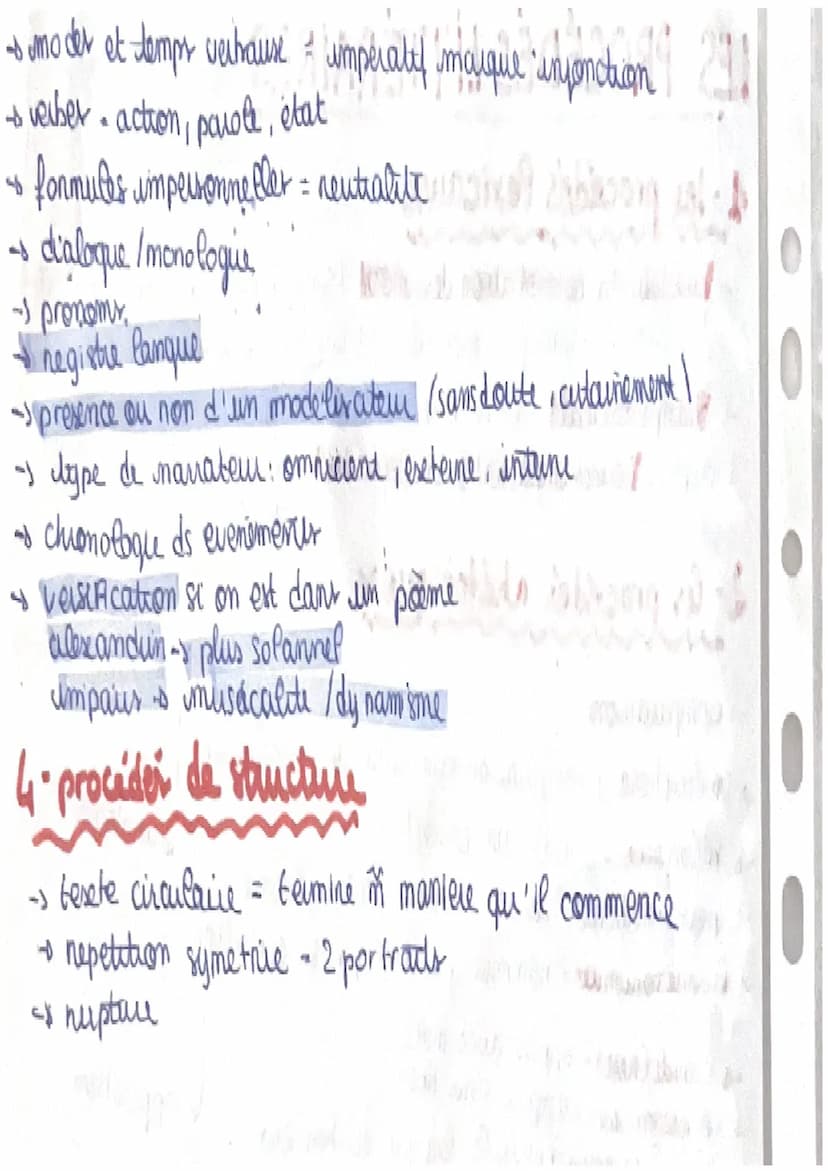 → modes et temps verbaux = impératif marque injonction
→ verbes = action, parole, état
→ formules impersonnelles = neutralité
→ dialogue / monologue
→ pronoms
→ registre langue
→ présence ou non d'un modélisateur (sans doute, certainement)
→ type de narrateur : omnicient, externe, interne
→ chronologie ds evenements
→ versification si on est dans un poème
alexandrin → plus solannel
impairs → musicalité / dynamisme
4. procédés de structure
→ texte circulaire = termine m̂ manière qu'il commence
→ repetition symetrie = 2 portraits
→ rupture